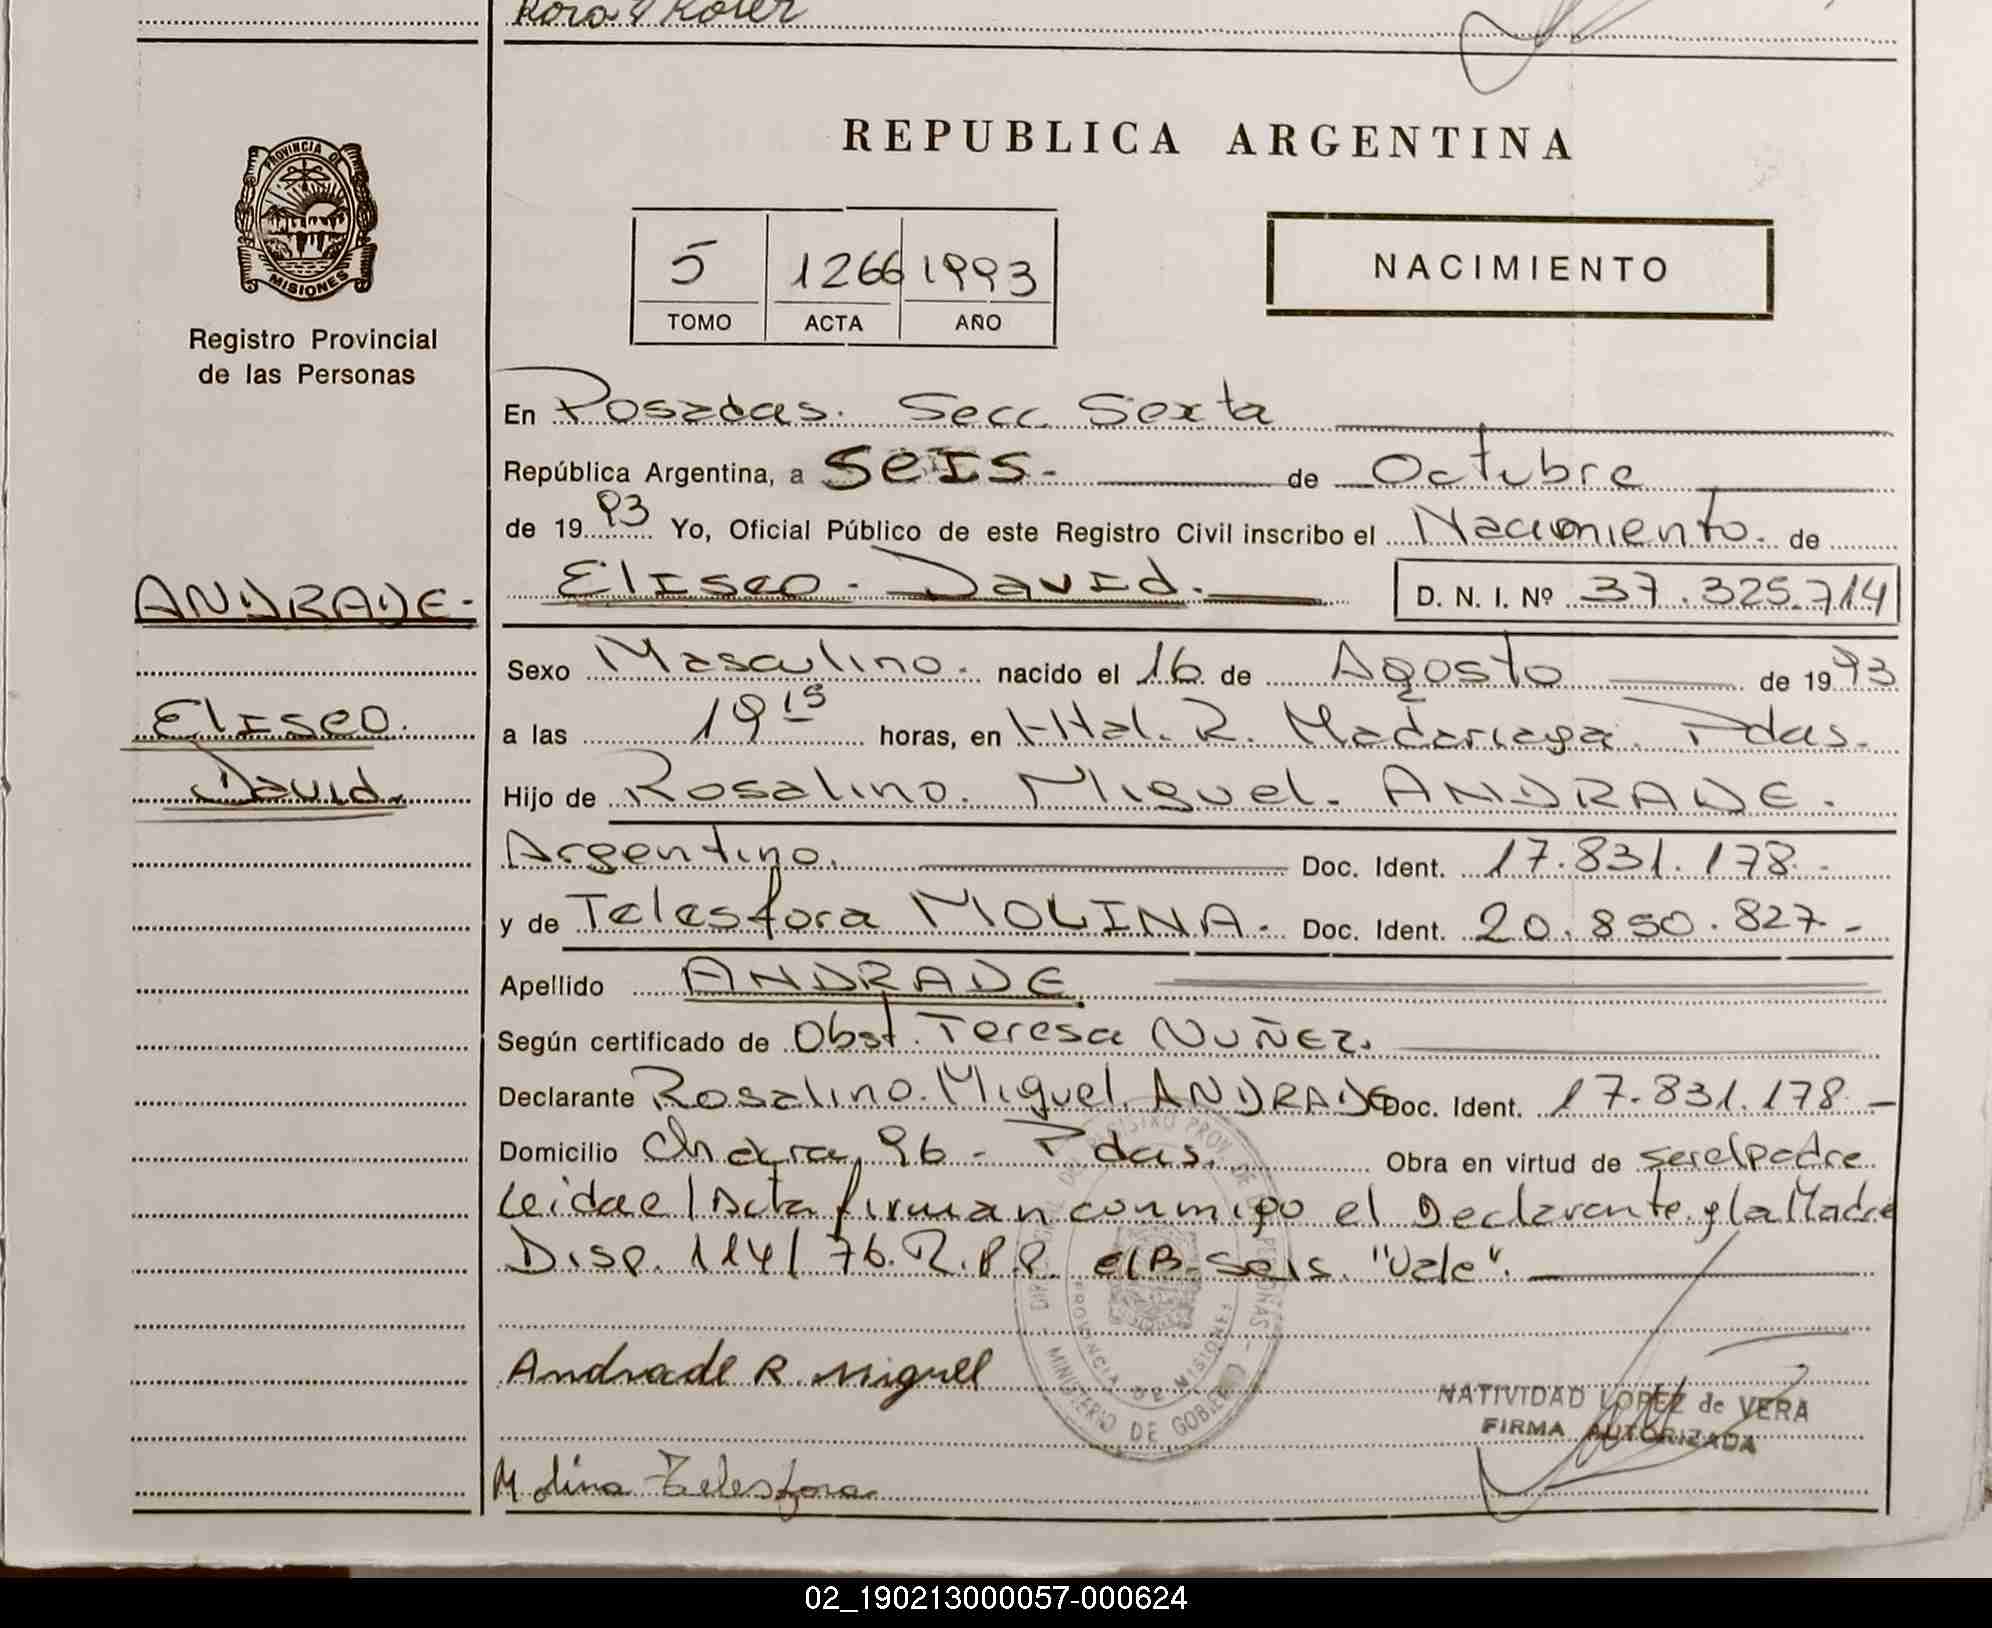 REPUBLICA ARGENTINA
PROVINCIA DE
MISIONES
Registro Provincial
de las Personas
5 1266 1993
TOMO ACTA AÑO
NACIMIENTO
En Posadas. Secc. Sexta
República Argentina, a SEIS.- de Octubre
de 1993 Yo, Oficial Público de este Registro Civil inscribo el Nacimiento. de
ANDRADE.-
Eliseo
David.
Eliseo - David. D. N. I. Nº 37.325.714
Sexo Masculino. nacido el 16 de Agosto de 1993
a las 19 15 horas, en Htal. R. Madariaga Pdas.
Hijo de Rosalino. Miguel. ANDRADE.
Argentino. Doc. Ident. 17.831.178.-
y de Telesfora MOLINA.- Doc. Ident. 20.850.827.-
Apellido ANDRADE.
Según certificado de Obst. Teresa NUÑEZ.
Declarante Rosalino. Miguel. ANDRADE Doc. Ident. 17.831.178.-
Domicilio Chacra 96 - Pdas. Obra en virtud de ser el padre
Leida e/Acta firman conmigo el Declarante y la Madre
Disp. 114/76. R.P.P. e/B. Seis. "Vale".
Andrade R. Miguel
NATIVIDAD LOPEZ de VERA
FIRMA AUTORIZADA
Molina Telesfora
PROVINCIA DE MISIONES
MINISTERIO DE GOBIERNO
02_190213000057-000624